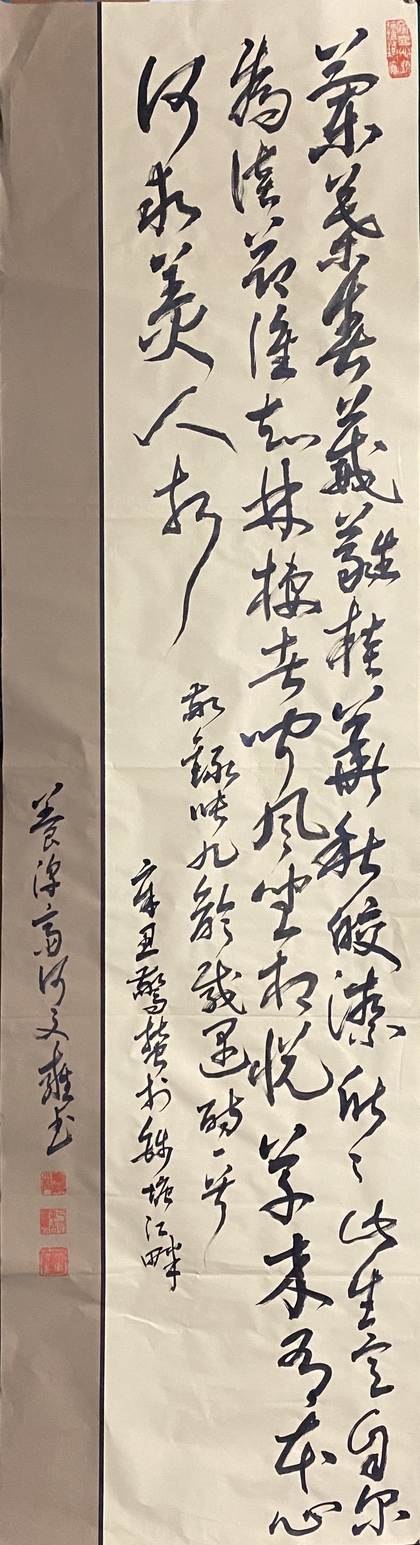 蘭葉春葳蕤桂華秋皎潔欣〻此生意自尔
為佳節誰知林棲者聞風坐相悦草木有本心
何求美人折
敬錄張九齡感遇詩一首
辛丑驚蟄於錢塘江畔
養淳齋何文雍书